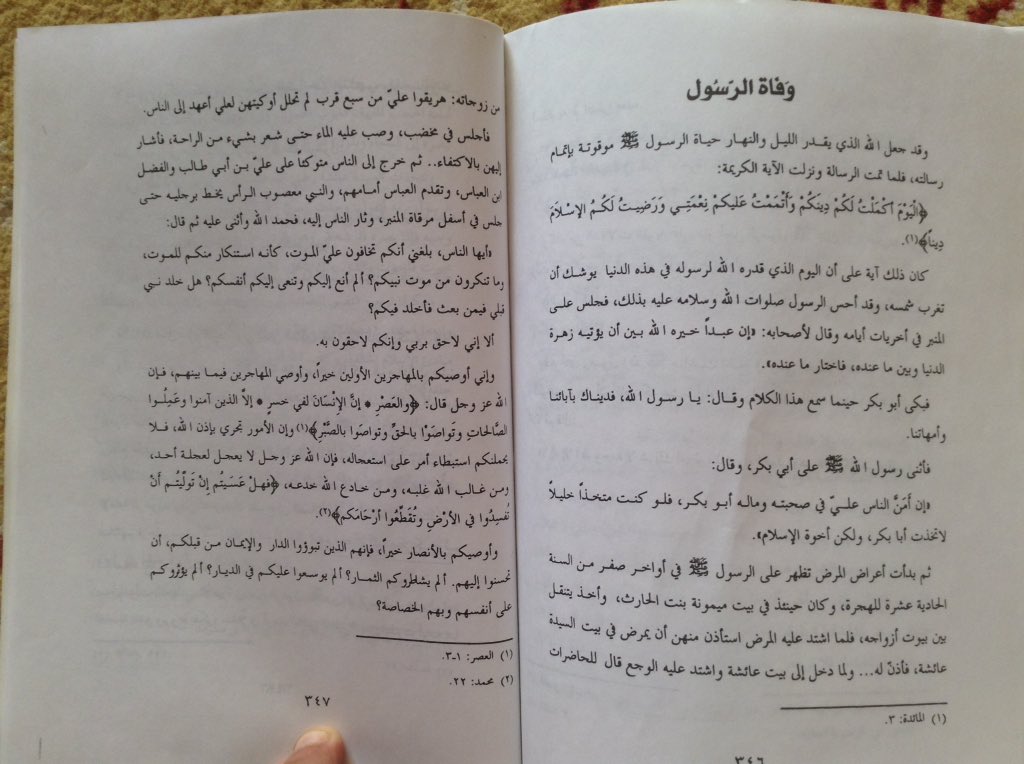 وَفاة الرّسُول
وقد جعل الله الذي يقدر الليل والنهار حياة الرسول ﷺ موقوتة بإتمام
رسالته، فلما تمت الرسالة ونزلت الآية الكريمة:
﴿الْيَوْمَ أَكْمَلْتُ لَكُمْ دِينَكُمْ وَأَتْمَمْتُ عَلَيكمْ نِعْمَتِي وَرَضِيتُ لَكُمُ الإسْلامَ
دِيناً﴾(١).
كان ذلك آية على أن اليوم الذي قدره الله لرسوله في هذه الدنيا يوشك أن
تغرب شمسه، وقد أحس الرسول صلوات الله وسلامه عليه بذلك، فجلس على
المنبر في أخريات أيامه وقال لأصحابه: «إن عبداً خيره الله بين أن يؤتيه زهرة
الدنيا وبين ما عنده، فاختار ما عنده».
فبكى أبو بكر حينما سمع هذا الكلام وقال: يا رسول الله، فديناك بآبائنا
وأمهاتنا.
فأثنى رسول الله ﷺ على أبي بكر، وقال:
«إن أمَنَّ الناس عليّ في صحبته وماله أبو بكر، فلو كنت متخذاً خليلاً
لاتخذت أبا بكر، ولكن أخوة الإسلام».
ثم بدأت أعراض المرض تظهر على الرسول ﷺ في أواخر صفر من السنة
الحادية عشرة للهجرة، وكان حينئذ في بيت ميمونة بنت الحارث، وأخذ يتنقل
بين بيوت أزواجه، فلما اشتد عليه المرض استأذن منهن أن يمرض في بيت السيدة
عائشة، فأذنّ له... ولما دخل إلى بيت عائشة واشتد عليه الوجع قال للحاضرات
(١) المائدة: ٣.
٣٤٦
من زوجاته: هريقوا عليّ من سبع قرب لم تحلل أوكيتهن لعلي أعهد إلى الناس.
فأجلس في مخضب، وصب عليه الماء حتى شعر بشيء من الراحة، فأشار
إليهن بالاكتفاء.. ثم خرج إلى الناس متوكئاً على عليّ بن أبي طالب والفضل
ابن العباس، وتقدم العباس أمامهم، والنبي معصوب الرأس يخط برجليه حتى
جلس في أسفل مرقاة المنبر، وثار الناس إليه، فحمد الله وأثنى عليه ثم قال:
«أيها الناس، بلغني أنكم تخافون عليّ الموت، كأنه استنكار منكم للموت،
وما تنكرون من موت نبيكم؟ ألم أنع إليكم وتنعى إليكم أنفسكم؟ هل خلد نبي
قبلي فيمن بعث فأخلد فيكم؟
ألا إني لاحق بربي وإنكم لاحقون به.
وإني أوصيكم بالمهاجرين الأولين خيراً، وأوصي المهاجرين فيما بينهم، فإن
الله عز وجل قال: ﴿والعَصْرِ * إنَّ الإنْسَانَ لفي خسرٍ * إلاَّ الذين آمنوا وعَمِلُوا
الصَّالحاتِ وتَواصَوْا بالحَقِّ وتواصَوا بالصَّبْرِ﴾(١) وإن الأمور تجري بإذن الله، فلا
يحملنكم استبطاء أمر على استعجاله، فإن الله عز وجل لا يعجل لعجلة أحد،
ومن غالب الله غلبه، ومن خادع الله خدعه، ﴿فهلْ عَسَيتم إنْ تَولَّيْتُم أَنْ
تُفسِدُوا في الأرْضِ وتُقَطِّعُوا أرْحَامَكم﴾(٢).
وأوصيكم بالأنصار خيراً، فإنهم الذين تبوؤوا الدار والإيمان من قبلكم، أن
تحسنوا إليهم. ألم يشاطروكم الثمار؟ ألم يوسعوا عليكم في الديار؟ ألم يؤثروكم
على أنفسهم وبهم الخصاصة؟
(١) العصر: ١-٣.
(٢) محمد: ٢٢.
٣٤٧